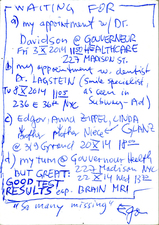 WAITING FOR
a) my appointment w/ Dr.
Davidson @ GOUVERNEUR
Fri 3 X 2014 HEALTHCARE
227 MADISON ST.
b) my appointment w. dentist
Dr. LAGSTEIN (Smile specialist
8 X 2014 as seen in
236 E 36th NYC Subway-Ad)
c) Edgar, Anna, ZIPFEL, LINDA
@ 319 Grand 20 X 14
d) my turn @ Gouverneur Health
BUT GREAT: 227 Madison NYC
GOOD TEST 22 X 14 Wed
RESULTS esp. BRAIN MRI
"So many missing"
Ego